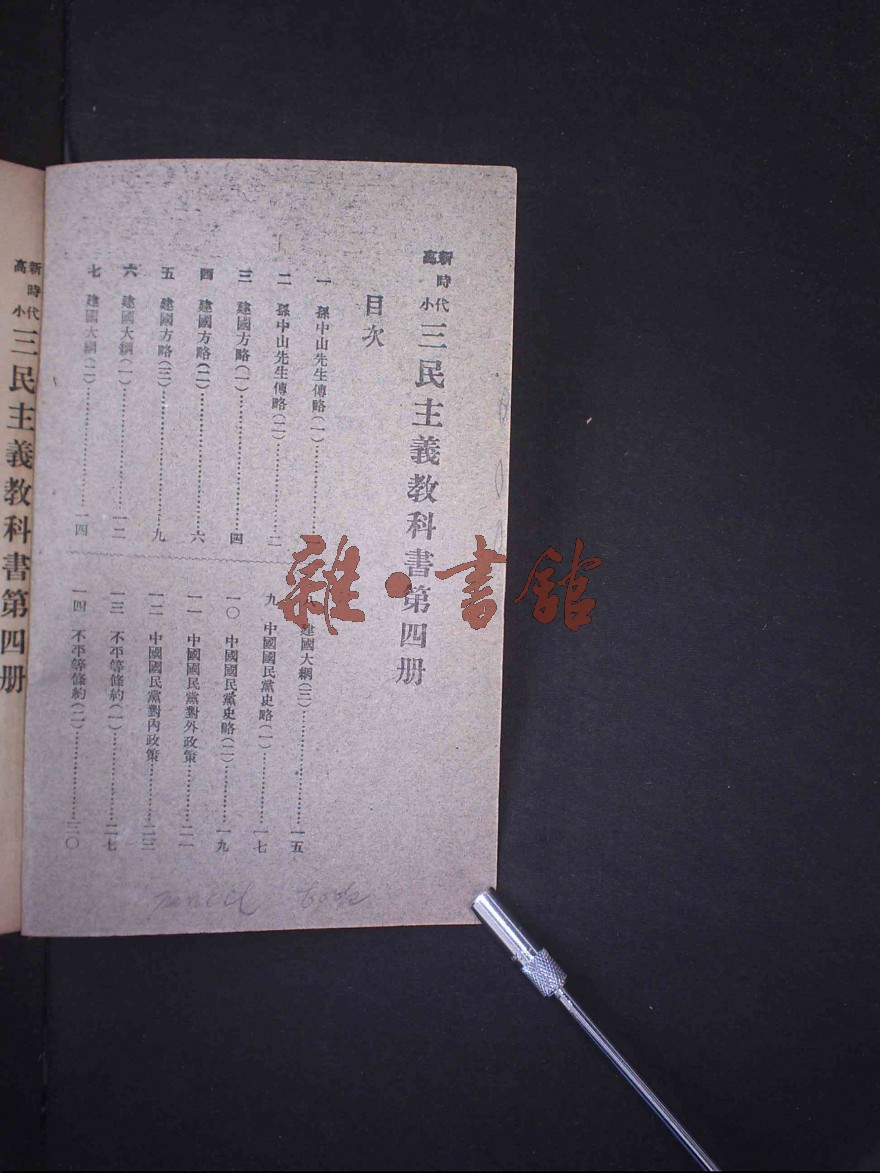 新時代高小
三民主義教科書第四册
目次
一 孫中山先生傳略(一)
二 孫中山先生傳略(二)……二
三 建國方略(一)……四
四 建國方略(二)……六
五 建國方略(三)……九
六 建國大綱(一)……一二
七 建國大綱(二)……一四
建國大綱(三)……一五
九 中國國民黨史略(一)……一七
一〇 中國國民黨史略(二)……一九
一一 中國國民黨對外政策……二一
一二 中國國民黨對內政策……二三
一三 不平等條約(一)……二七
一四 不平等條約(二)……三〇
新時代高小
三民主義教科書第四册
雜·書館